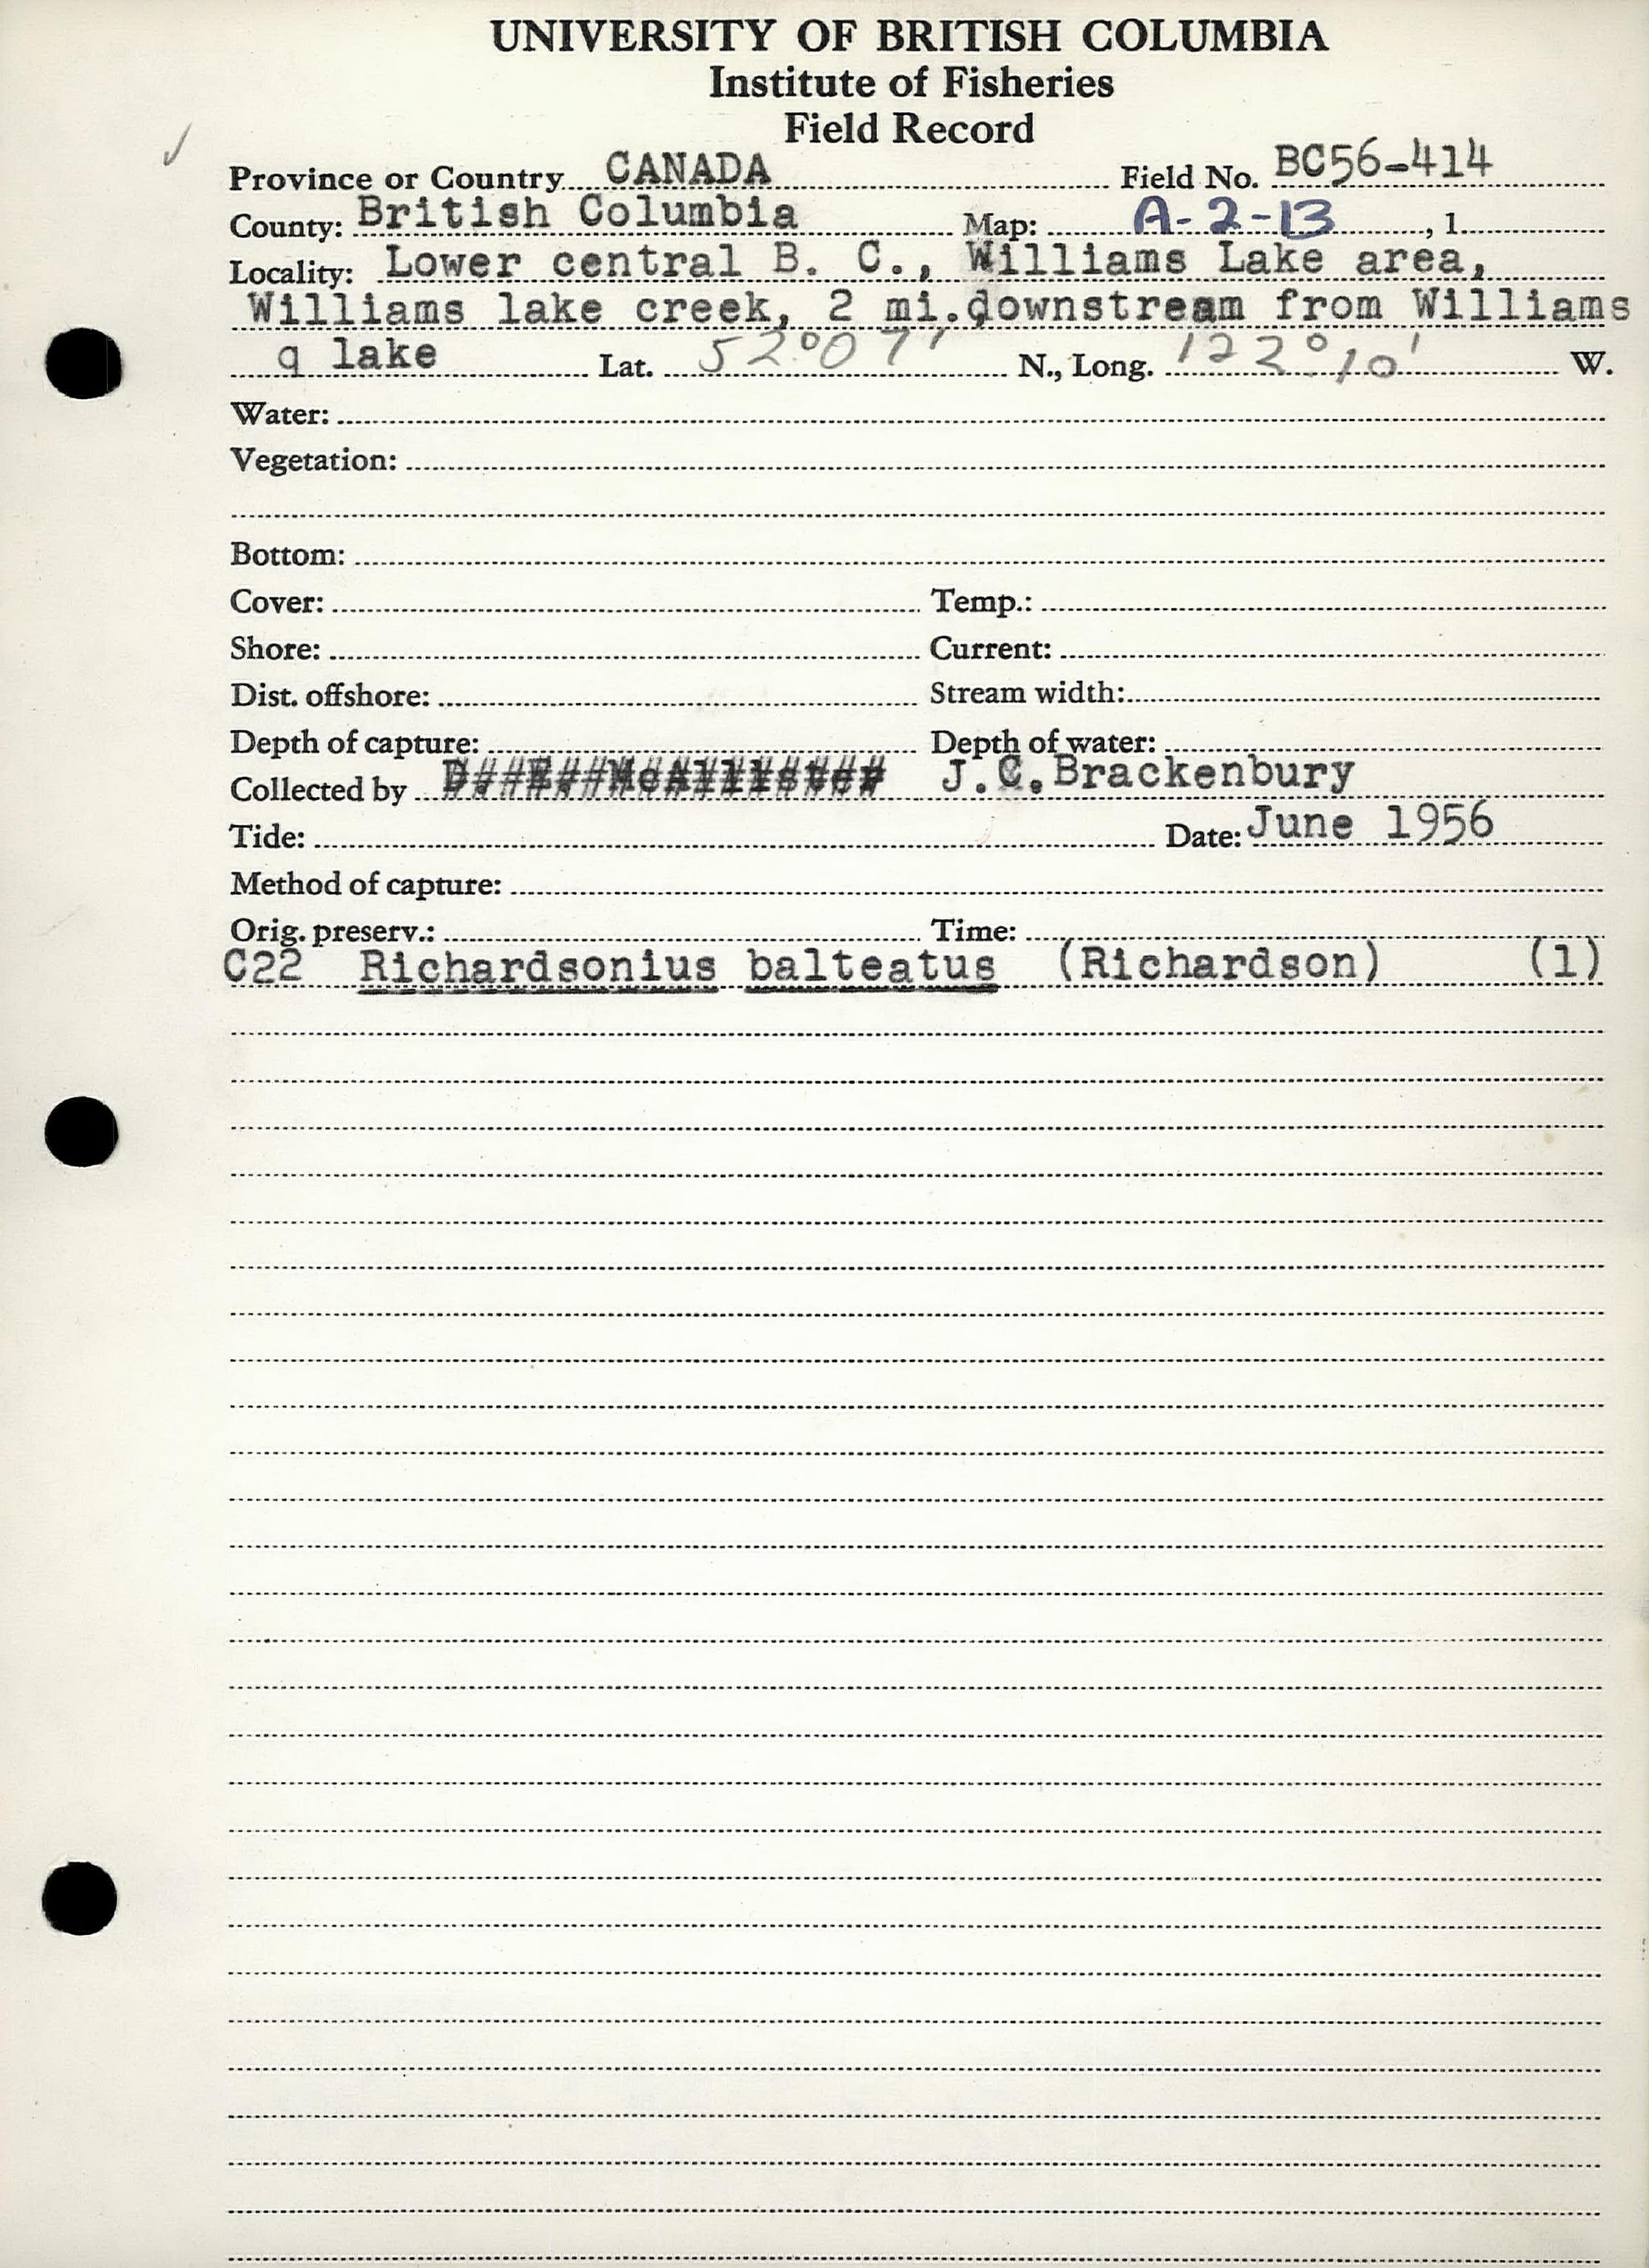 UNIVERSITY OF BRITISH COLUMBIA
Institute of Fisheries
Field Record
Province or Country CANADA Field No. BC56-414
County: British Columbia Map: A-2-13, 1
Locality: Lower central B. C., Williams Lake area,
Williams lake creek, 2 mi.downstream from Williams
q lake Lat. 52°07' N., Long. 122°10' W.
Water:
Vegetation:
Bottom:
Cover: Temp.:
Shore: Current:
Dist. offshore: Stream width:
Depth of capture: Depth of water:
Collected by D##E##McAllister J.C.Brackenbury
Tide: Date: June 1956
Method of capture:
Orig. preserv.: Time:
C22 Richardsonius balteatus (Richardson) (1)